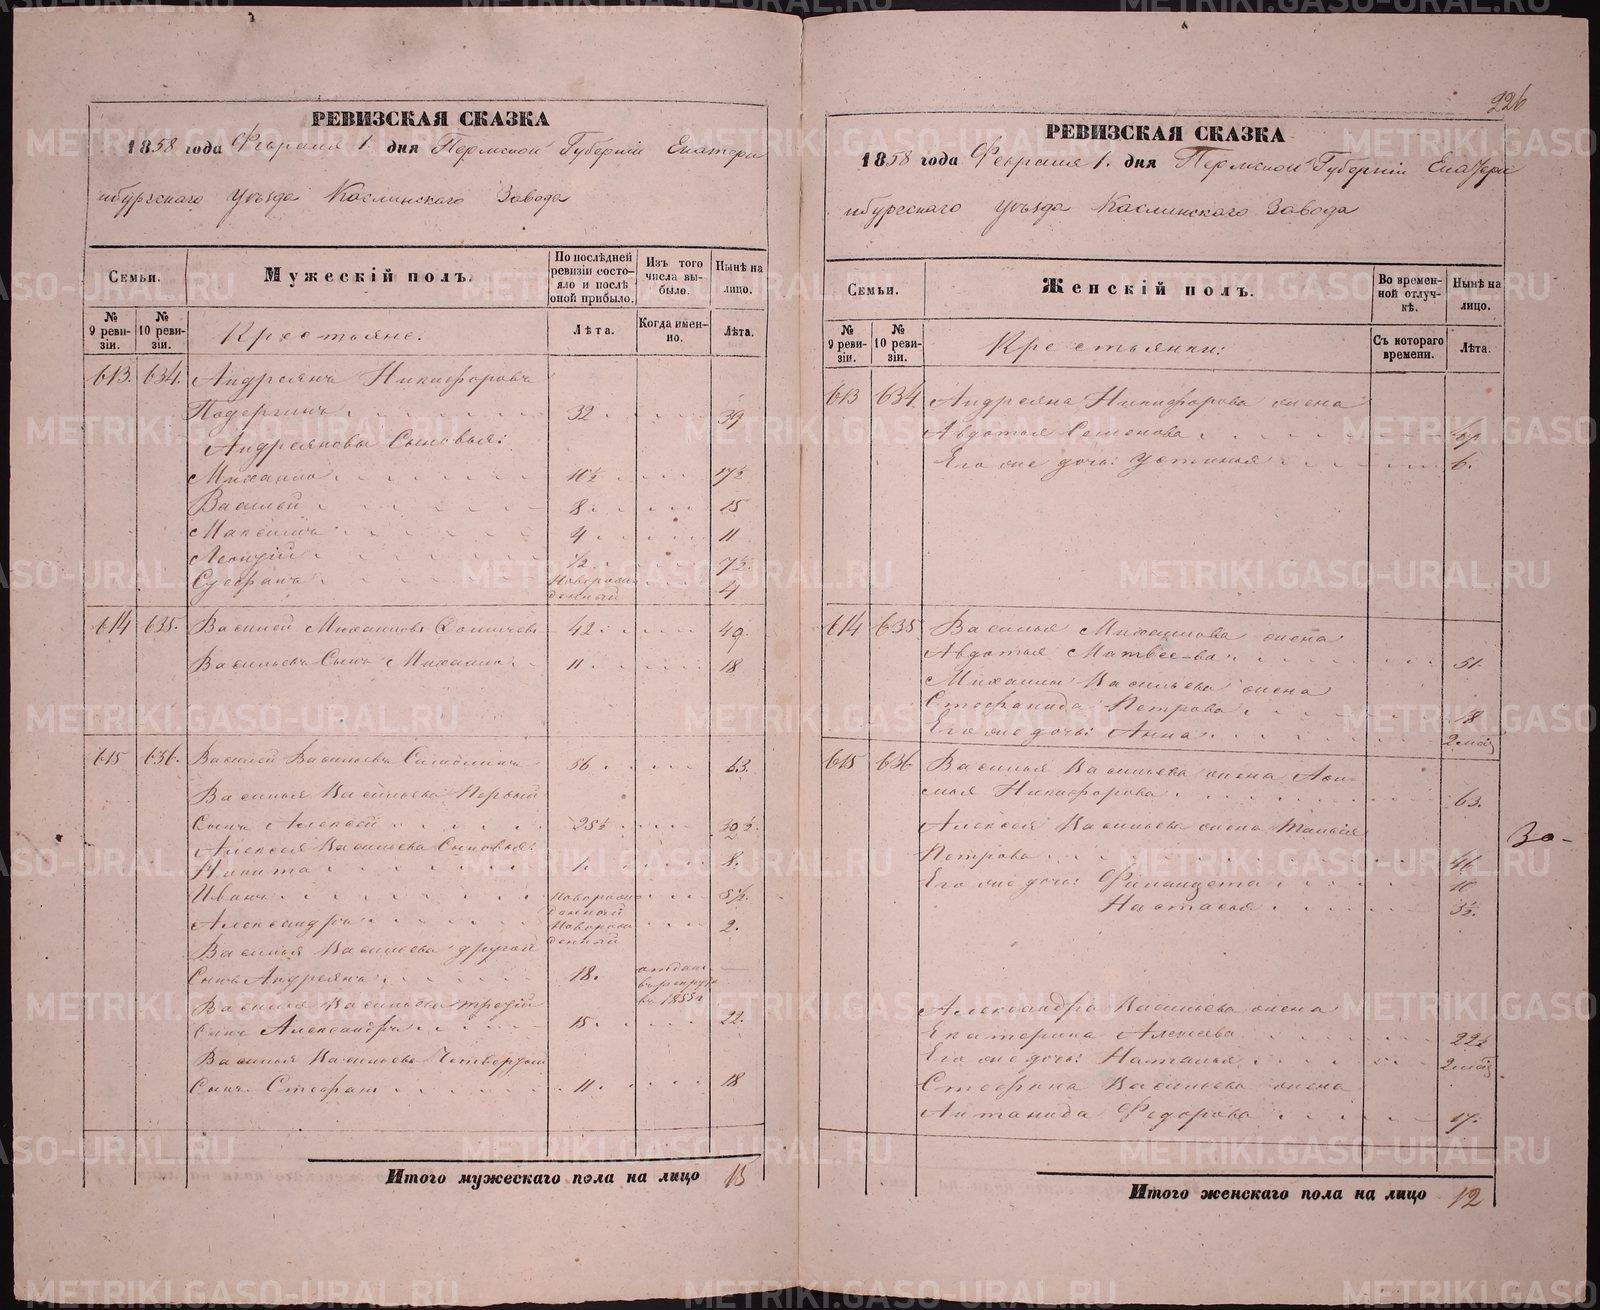 РЕВИЗСКАЯ СКАЗКА
1858 года Февраля 1. дня Пермской Губерніи Екатери
нбургскаго Уѣзда Каслинскаго Завода
Семьи.
Мужескій полъ.
По послѣдней ревизіи состояло и послѣ оной прибыло.
Изъ того числа выбыло.
Нынѣ на лицо.
№ 9 ревизіи.
№ 10 ревизіи.
Крестьяне.
Лѣта.
Когда именно.
Лѣта.
613. 634. Андреянъ Никифоровъ
32 39
Андреяновы Сыновья:
Михаило 10½ 17½
Василей 8. 15
Максимъ 4 11
Леонтій ½ 7½.
Новорожденный 4
614 635. Василей Михайловъ 42 49.
Васильевъ Сынъ Михаило 11 18
615 636. Василей Васильевъ 56 63.
Василья Васильева Первый
Сынъ Алексѣй 25½ 32½.
Алексѣя Васильева Сыновья:
Никита 1. 8.
Иванъ Новорожденный 5½.
Александръ Новорожденный 2.
Василья Васильева другой
Сынъ Андреянъ 18. отданъ въ рекруты въ
Василья Васильева третій
Сынъ Александръ 15 22.
Василья Васильева Четвертый
Сынъ Стефанъ 11. 18
Итого мужескаго пола на лицо 15
226
РЕВИЗСКАЯ СКАЗКА
1858 года Февраля 1. дня Пермской Губерніи Екатери
нбургскаго Уѣзда Каслинскаго Завода
Семьи.
Женскій полъ.
Во временной отлучкѣ.
Нынѣ на лицо.
№ 9 ревизіи.
№ 10 ревизіи.
Крестьянки:
Съ котораго времени.
Лѣта.
613 634 Андреяна Никифорова жена
Авдотья Семенова
Его же дочь: Устинья 6.
614 635 Василья Михайлова жена
Авдотья Матвеева 51
Михаила Васильева жена
Стефанида Петрова 18
Его же дочь: Анна
615 636 Василья Васильева жена
Никифорова 63.
Алексѣя Васильева жена
Петрова
Его же дочь: 10
Настасья 3½.
Александра Васильева жена
Екатерина Алексѣева 22½
Его же дочь: Наталья
Стефана Васильева жена
Федорова 17.
Итого женскаго пола на лицо 12
METRIKI.GASO-URAL.RU